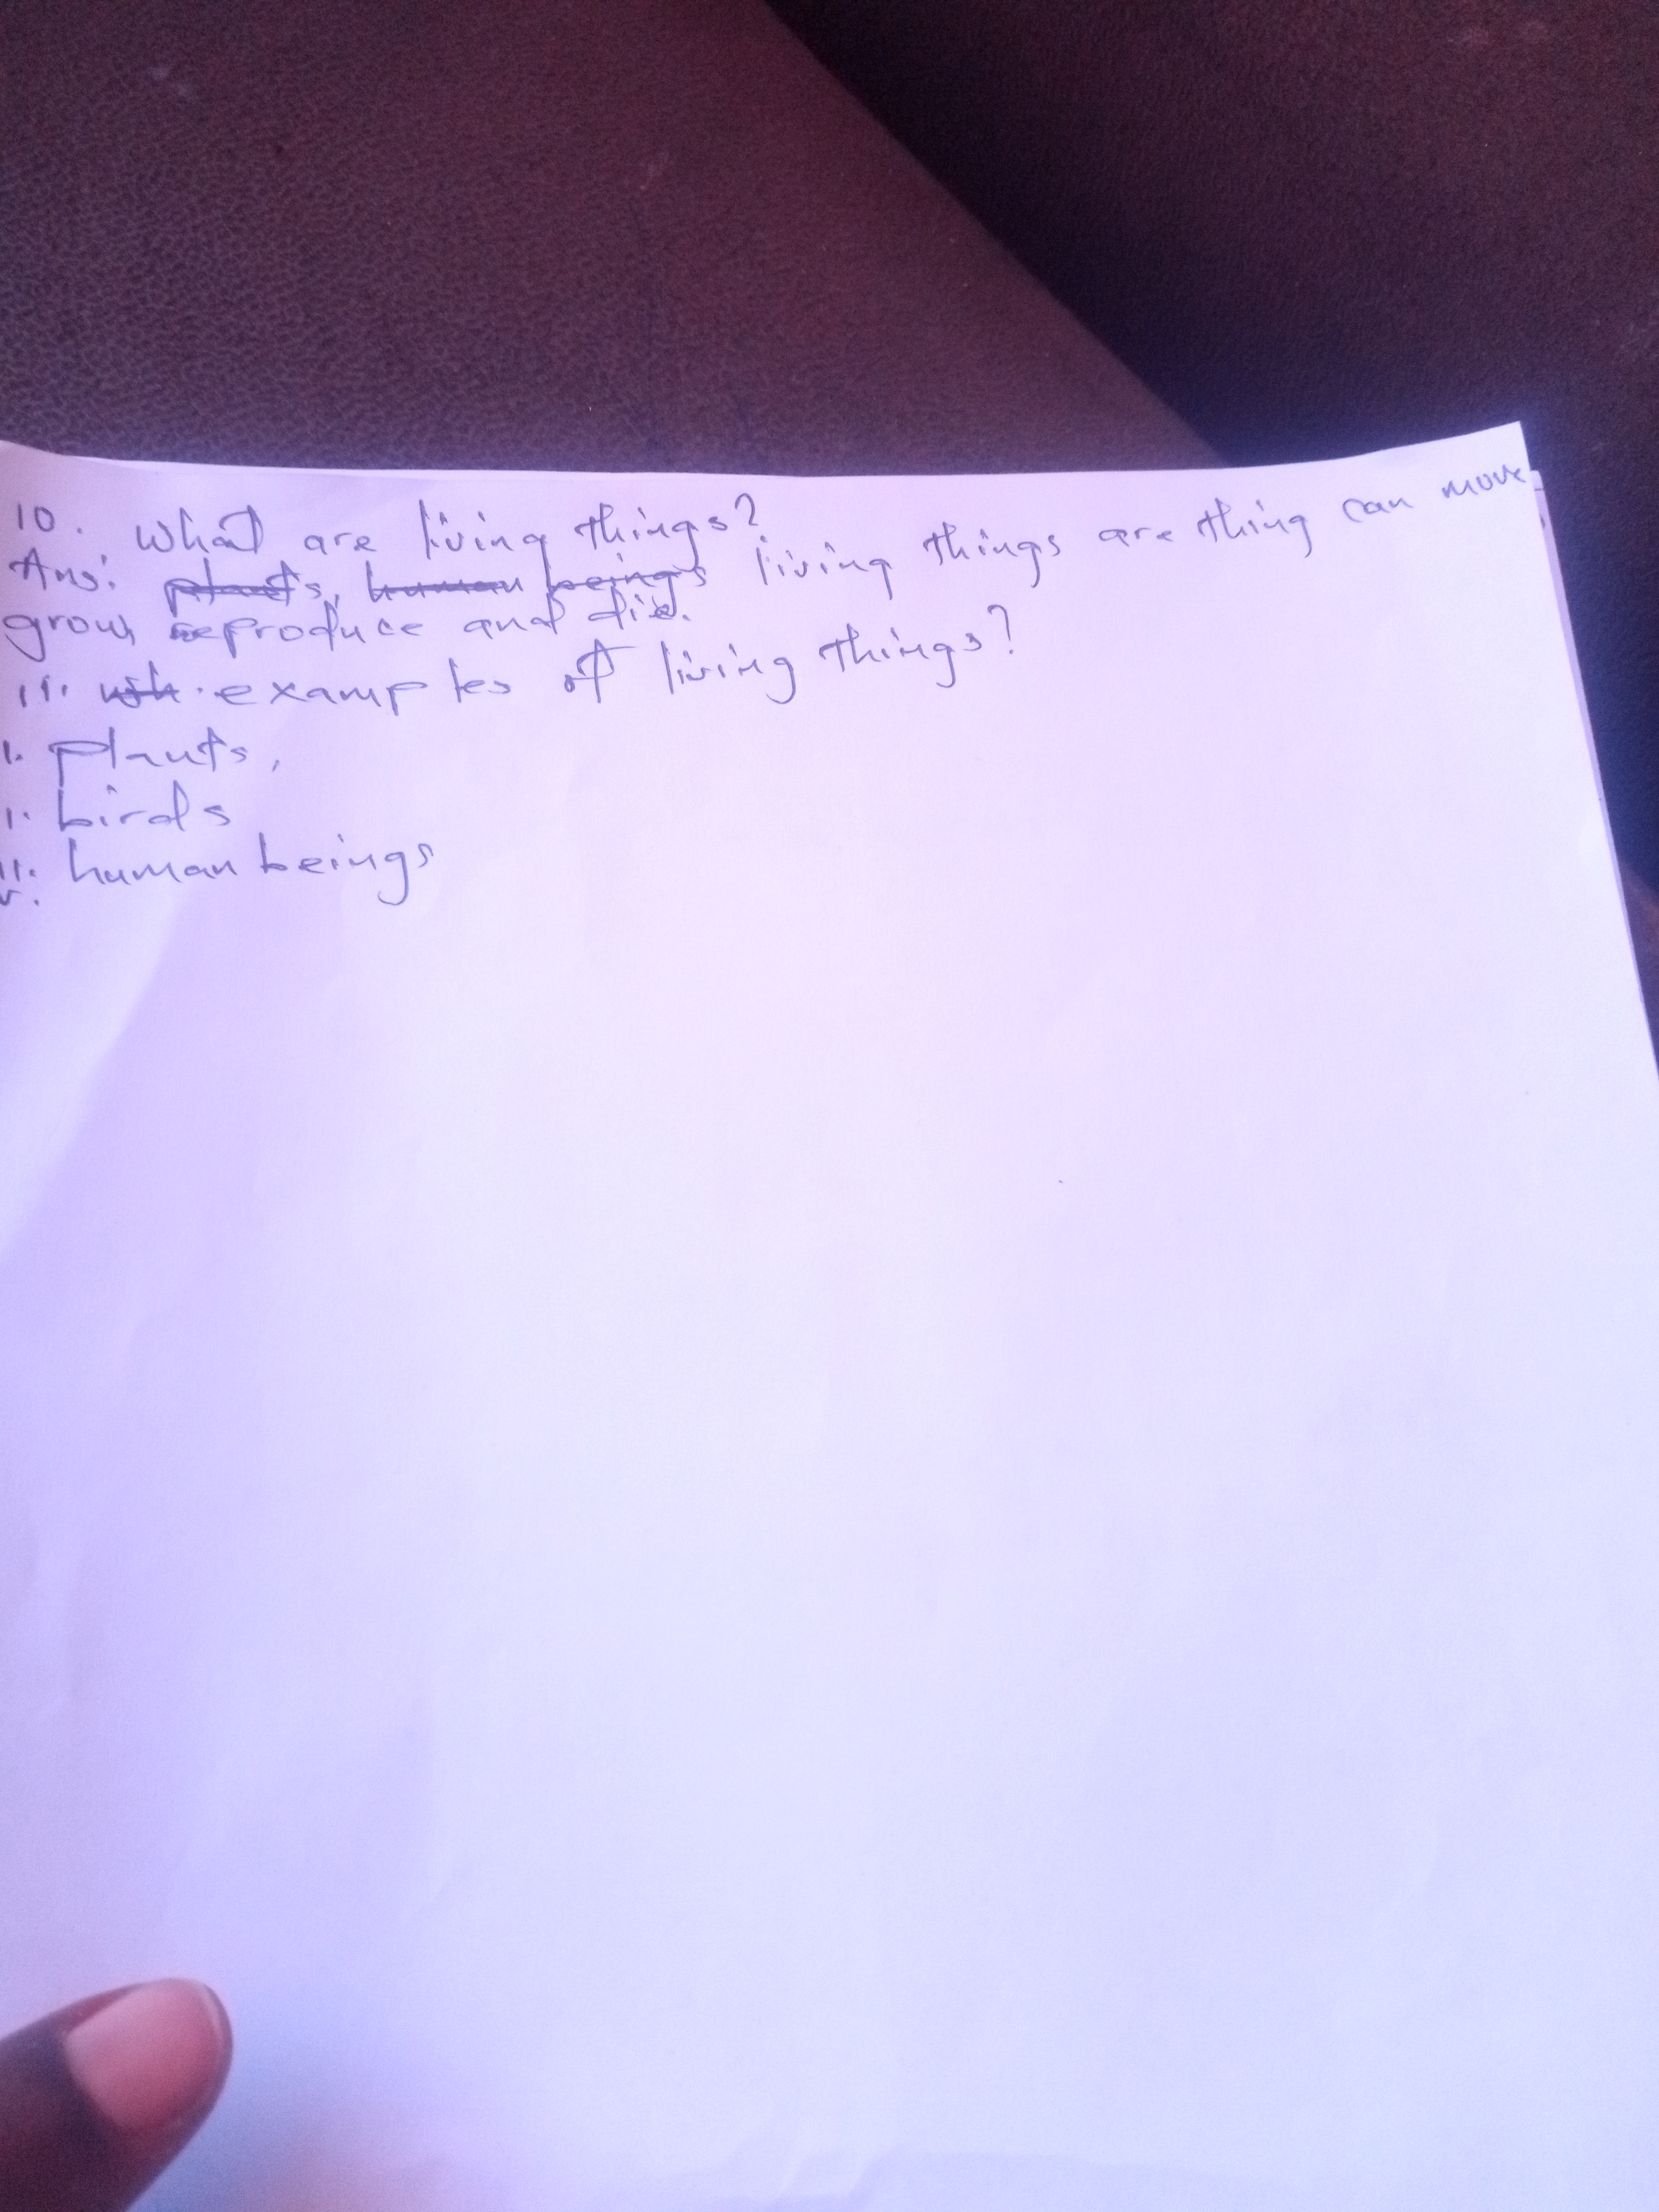 10. What are living things?
Ans: plants, human beings living things are thing can move
grow, reproduce and die.
11. examples of living things?
i. plants,
birds
human beings